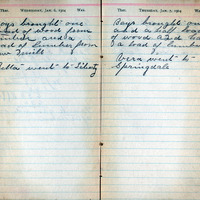 Ther. WEDNESDAY, JAN. 6, 1904 Wea.
Boys brought one
load of wood from
timber and a
load of lumber from
Smith
Della went to Liberty
Ther. THURSDAY, JAN. 7, 1904 Wea.
Boys brought one
and a half loads
of wood and
a load of lumber
Vera went to
Springdale